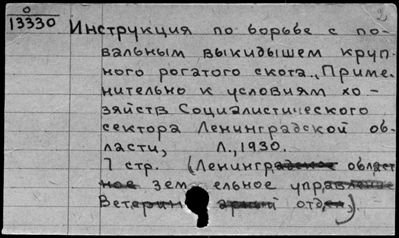 0
13330
2
Инструкция по борьбе с по-
вальным выкидышем круп-
ного рогатого скота. Приме-
нительно к условиям хо-
зяйств Социалистического
сектора Ленинградской об-
ласти, Л., 1930.
7 стр. (Ленинградское област
ное зем ельное управление
Ветерин арный отдел)